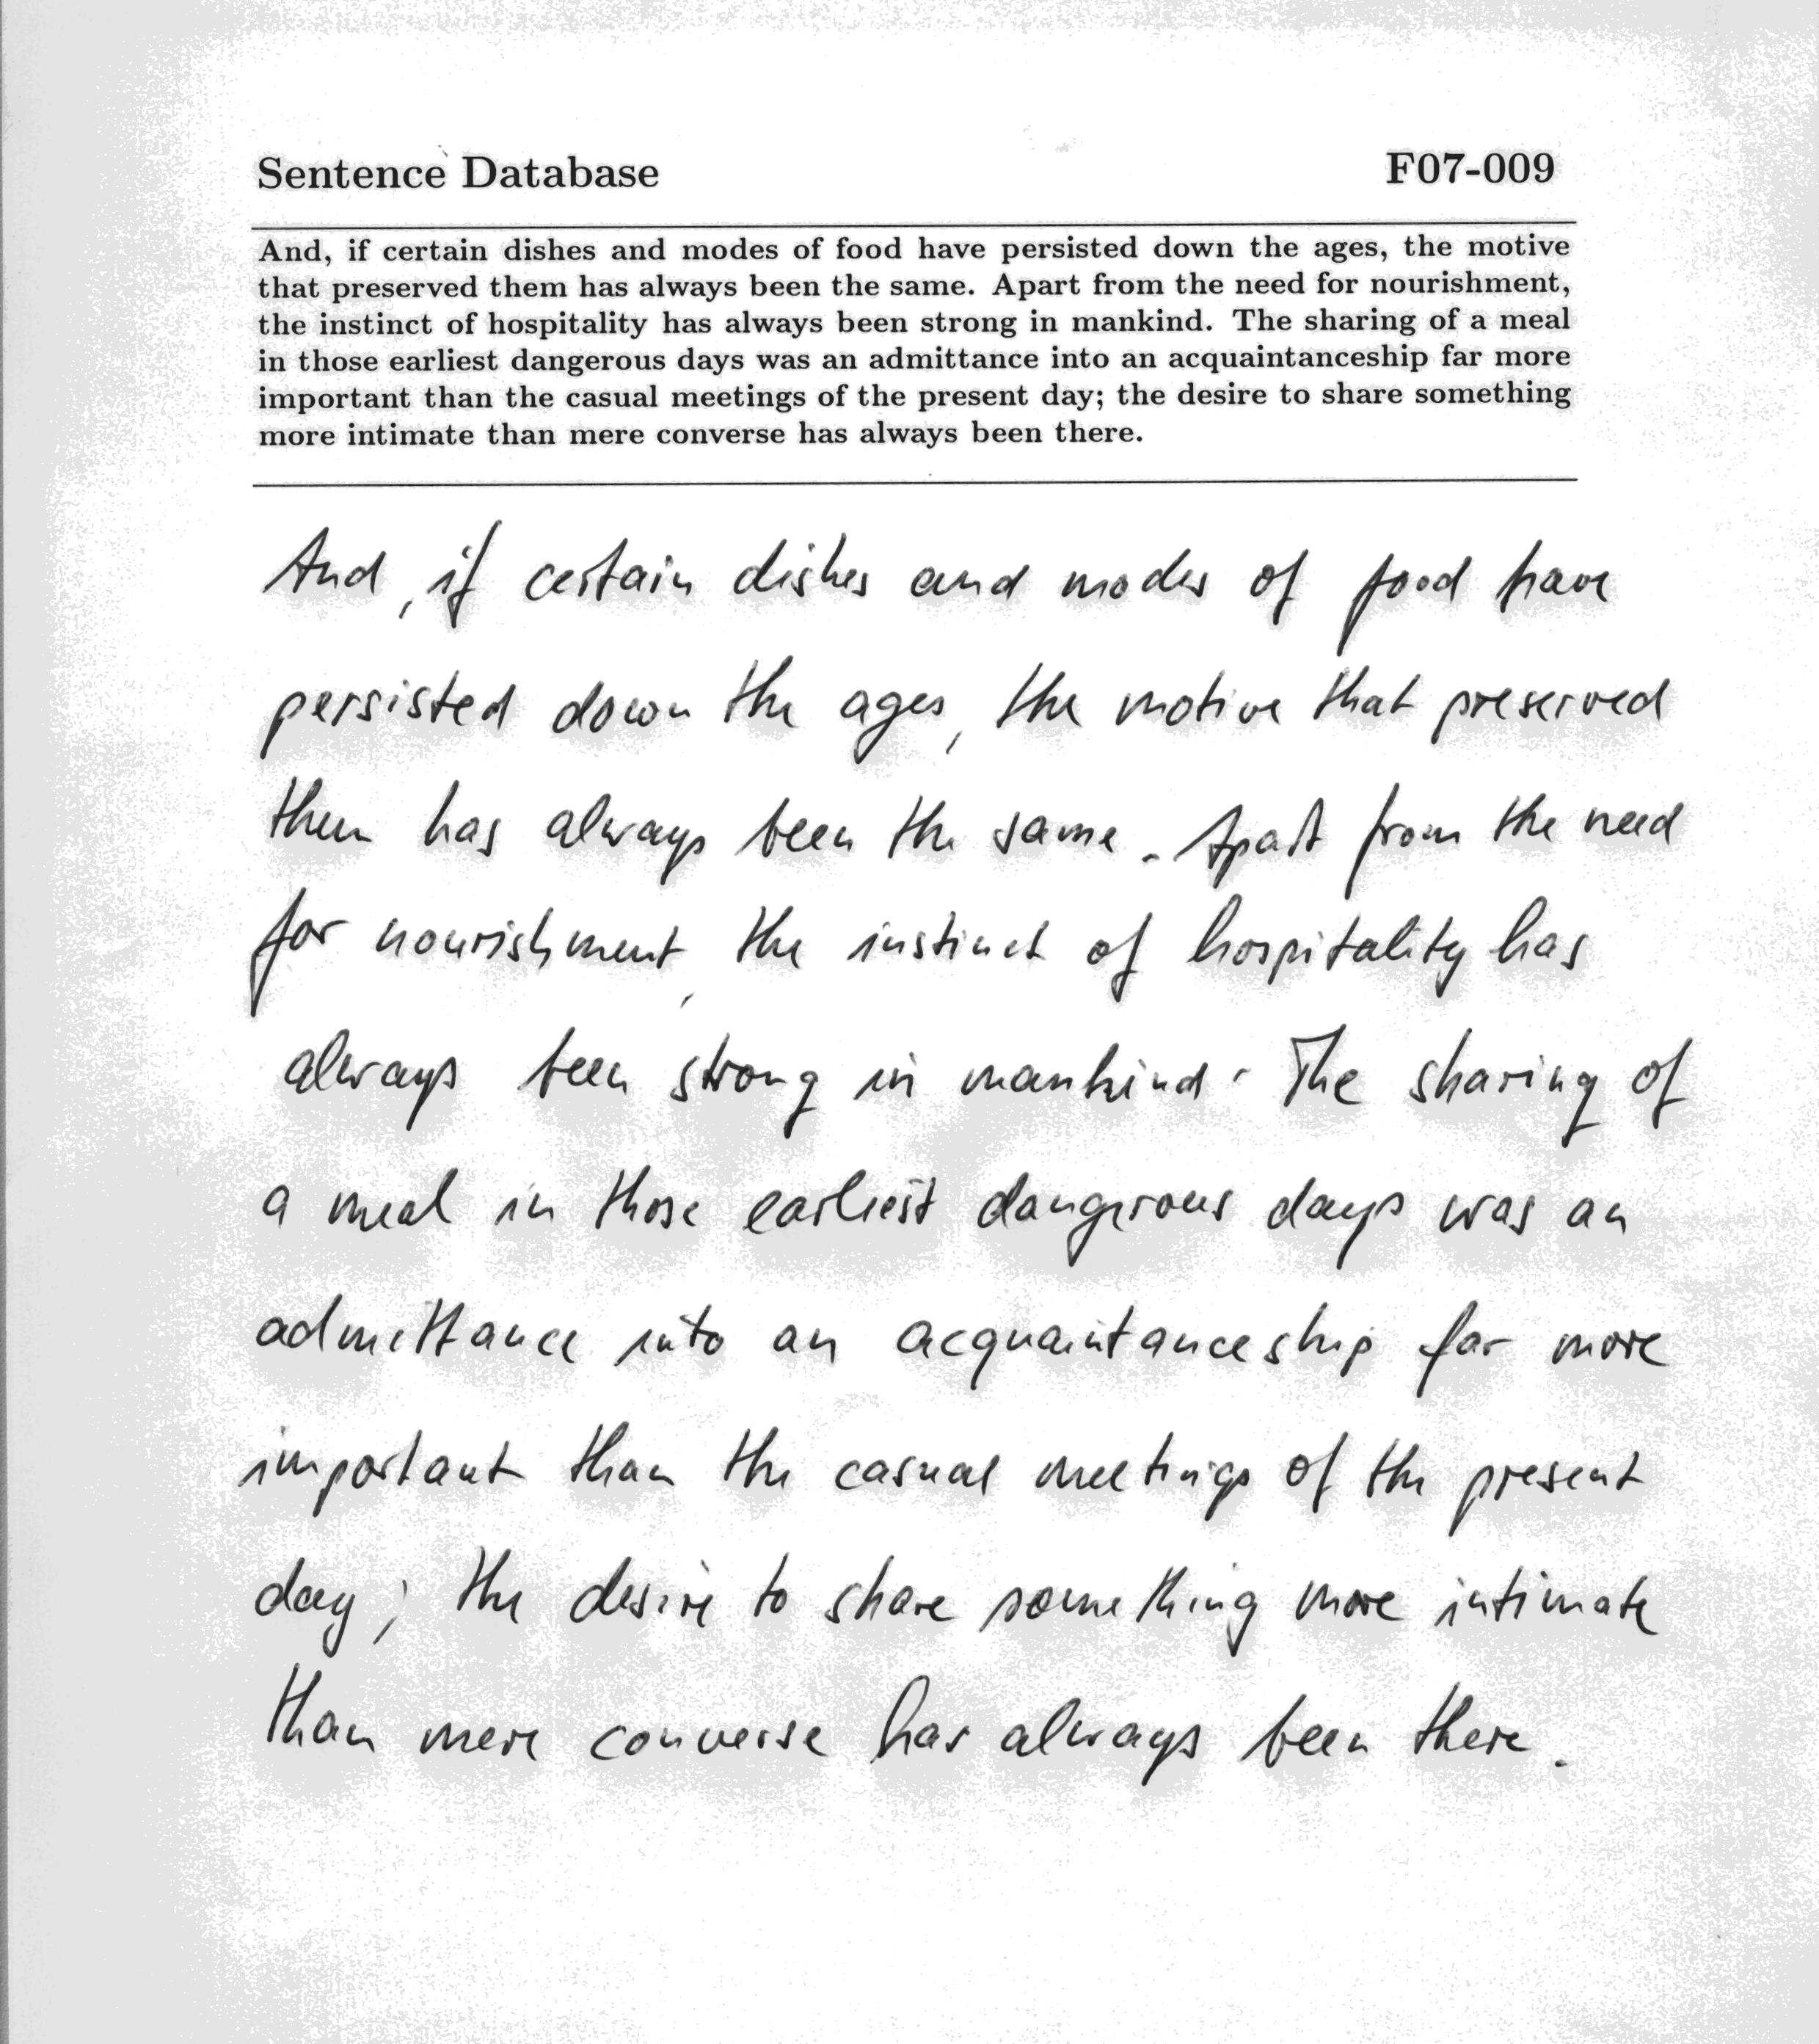 Sentence Database F07-009
And, if certain dishes and modes of food have persisted down the ages, the motive
that preserved them has always been the same. Apart from the need for nourishment,
the instinct of hospitality has always been strong in mankind. The sharing of a meal
in those earliest dangerous days was an admittance into an acquaintanceship far more
important than the casual meetings of the present day; the desire to share something
more intimate than mere converse has always been there.
And, if certain dishes and modes of food have
persisted down the ages, the motive that preserved
them has always been the same. Apart from the need
for nourishment, the instinct of hospitality has
always been strong in mankind. The sharing of
a meal in those earliest dangerous days was an
admittance into an acquaintanceship far more
important than the casual meetings of the present
day; the desire to share something more intimate
than mere converse has always been there.